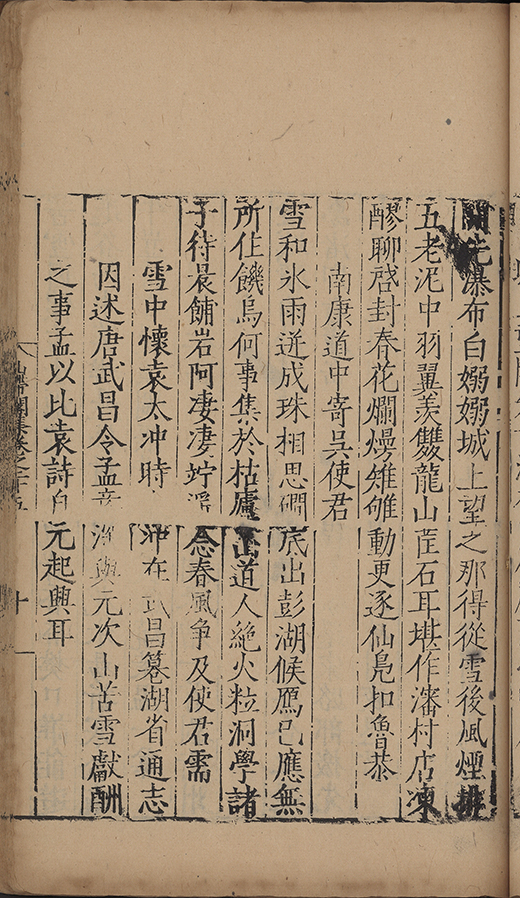 開先瀑布白嫋嫋城上望之那得從雪後風煙排
五老泥中羽翼羨雙龍山茌石耳堪作瀋村店凍
醪聊啓封春花爛熳雉雊動更逐仙鳧扣魯恭
南康道中寄吳使君
雪和氷雨逬成珠相思磵底出彭湖候鴈已應無
所住饑烏何事集於枯廬山道人絶火粒洞學諸
子待晨餔岩阿凄凄竚溪念春風爭及使君需
雪中懷袁太冲時冲在武昌篡湖省通志
因述唐武昌令孟彥深與元次山苦雪獻酬
之事孟以比袁詩自元起興耳
十